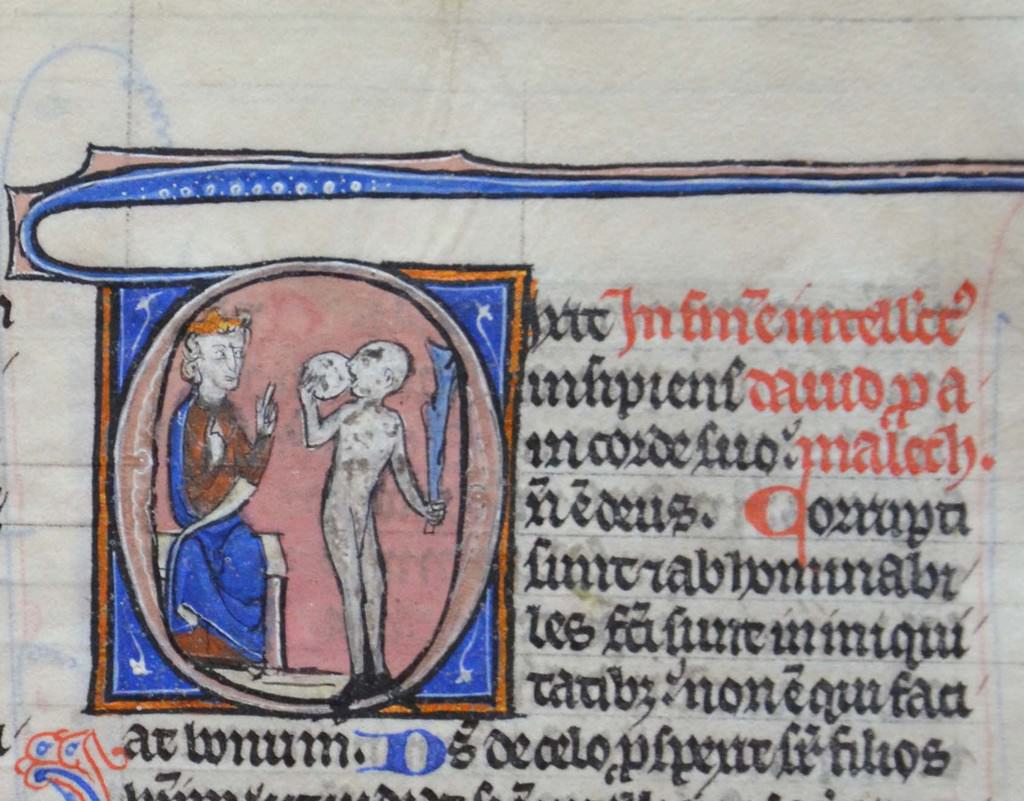 Dixit In finē intellectꝰ
insipiens dauid ꝓ a
in corde suo: malech.
n̄ ē deus. Corrupti
sunt ⁊ abhominabi
les fc̄i sunt in iniqui
tatibꝫ: non ē qui faci
at bonum. Ds̄ de celo ꝓspexit sr̄ filios